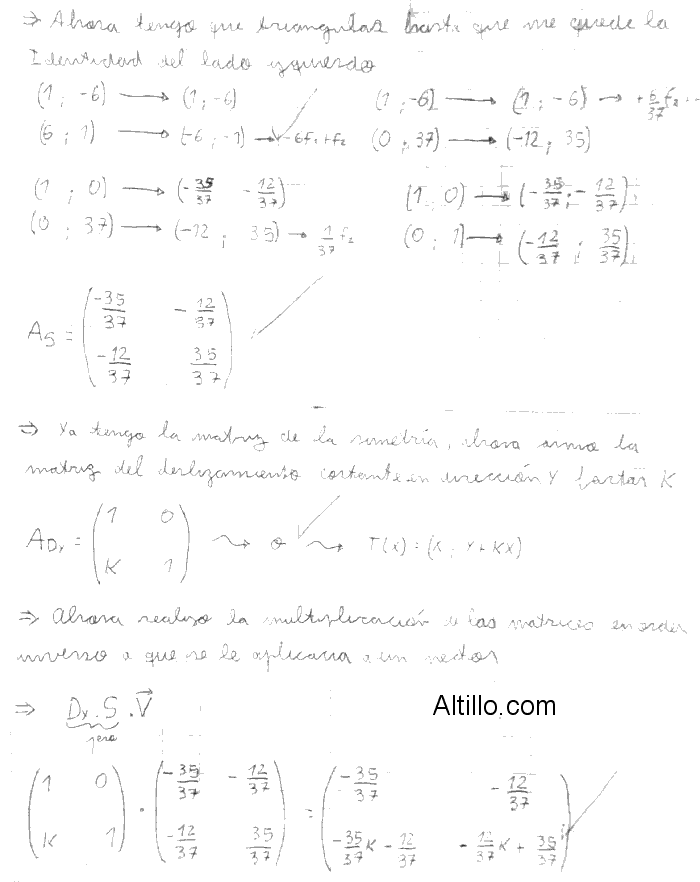 ⇒ Ahora tengo que triangular hasta que me quede la
Identidad del lado izquierdo
(1 ; -6) → (1 ; -6) (1 ; -6) → (1 ; -6) → +6/37 f₂
(6 ; 1) → (-6 ; -1) → -6f₁+f₂ (0 ; 37) → (-12 ; 35)
(1 ; 0) → (-35/37 -12/37) (1 ; 0) → (-35/37 ; -12/37)
(0 ; 37) → (-12 ; 35) → 1/37 f₂ (0 ; 1) → (-12/37 ; 35/37)
A_S = (-35/37 -12/37
-12/37 35/37)
⇒ Ya tengo la matriz de la simetría, ahora armo la
matriz del deslizamiento cortante en dirección Y factor K
A_Dy = (1 0
K 1) ⇝ ⇝ T(x) = (x ; y+kx)
⇒ Ahora realizo la multiplicación de las matrices en orden
inverso a que se le aplicaria a un vector
⇒ Dy . S . V⃗
Altillo.com
(1 0
K 1) . (-35/37 -12/37
-12/37 35/37) = (-35/37 -12/37
-35/37 K - 12/37 -12/37 K + 35/37)